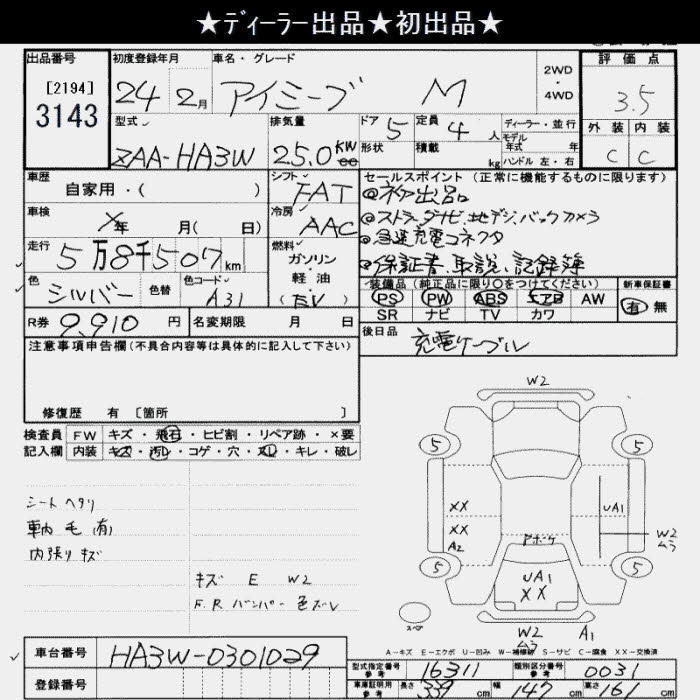 ★ディーラー出品★初出品★
出品番号 初度登録年月 車名・グレード 評価点
[2194] 24 2月 アイミーブ M 2WD・4WD 3.5
3143
型式 排気量 ドア 5 定員 4人 ディーラー・並行 外装 内装
ZAA-HA3W 25.0 KW 形状 積載 kg モデル年式 年 C C
ハンドル 左・右
車歴 自家用・( ) シフト FAT セールスポイント (正常に機能するものに限ります)
◎初出品
車検 年 月( 日) 冷房 AAC ◎ストラーダナビ、地デジ、バックカメラ
走行 5万8千507km 燃料 ガソリン・軽油 (EV) ◎急速充電コネクタ
◎保証書、取説、記録簿
色 シルバー 色替 色コード A31 装備品 (純正品に限り○をつけてください) 新車保証書
PS PW ABS エアB AW 有 無
R券 9,910円 名変期限 月 日 SR ナビ TV カワ
注意事項申告欄(不具合内容等は具体的に記入して下さい) 後日品 充電ケーブル
修復歴 有 [箇所 ]
検査員 FW キズ・飛石・ヒビ割・リペア跡・×要
記入欄 内装 キズ・汚レ・コゲ・穴・スレ・キレ・破レ
W2
5 5
XX UA1
XX W2
A2 ムラ
5 アボケ 5
UA1
XX
スペア
W2 A1
ムラ
シートヘタリ
車内毛(有)
内張りキズ
キズ E W2
F.R バンパー 色ズレ
A-キズ E-エクボ U-凹み W-補修跡 S-サビ C-腐食 XX-交換済
車台番号 HA3W-0301029
登録番号
型式指定番号 参考 16311 類別区分番号 参考 0031
車庫証明用 参考 長さ 339cm 幅 147cm 高さ 161cm